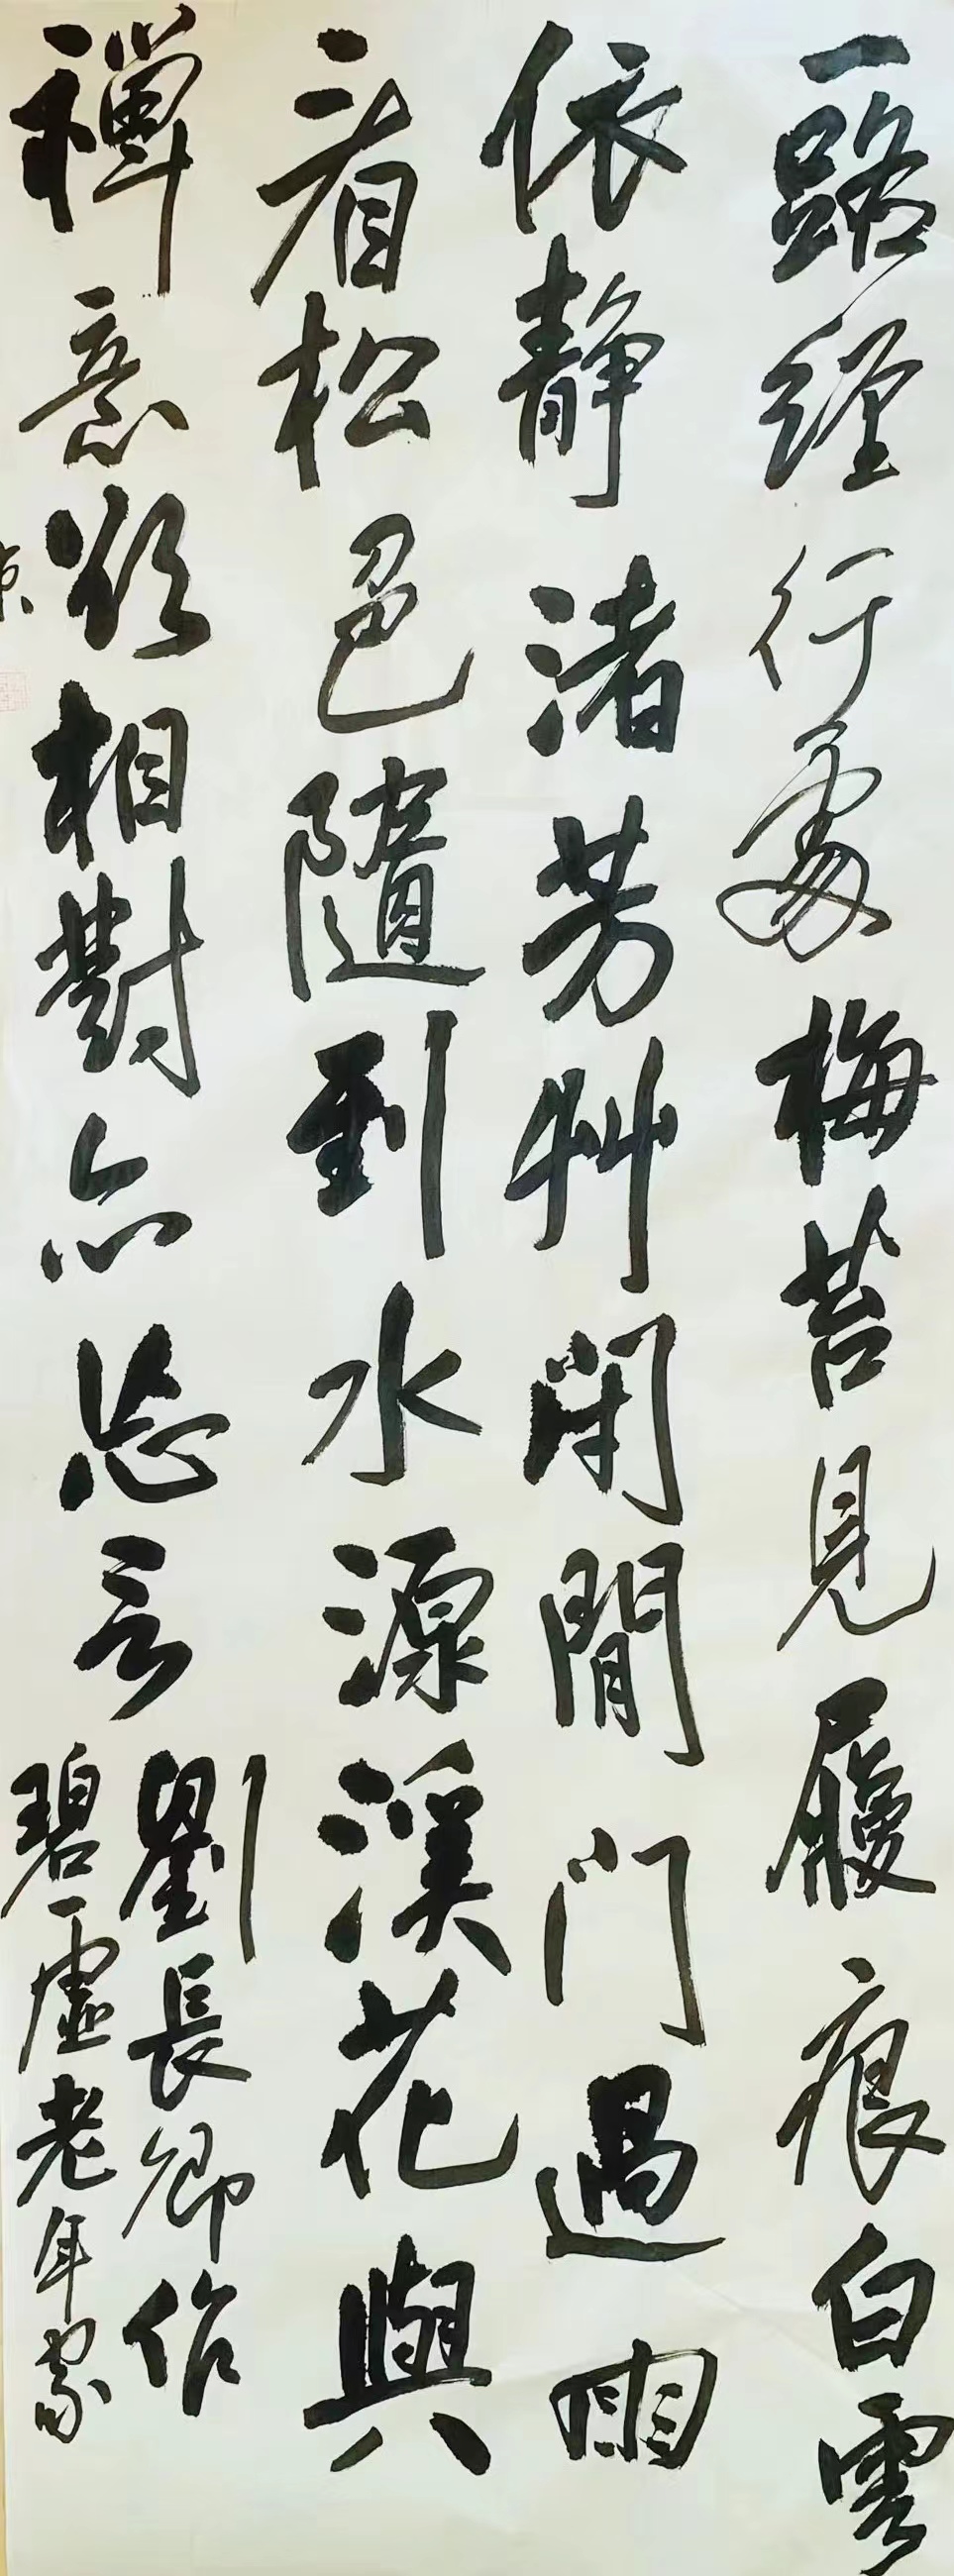 一路經行處梅苔見履痕白雲
依静渚芳艸閉閒門過雨
看松色隨到水源溪花與
禪意欲相對亦忘言
劉長卿作
碧虛老年家